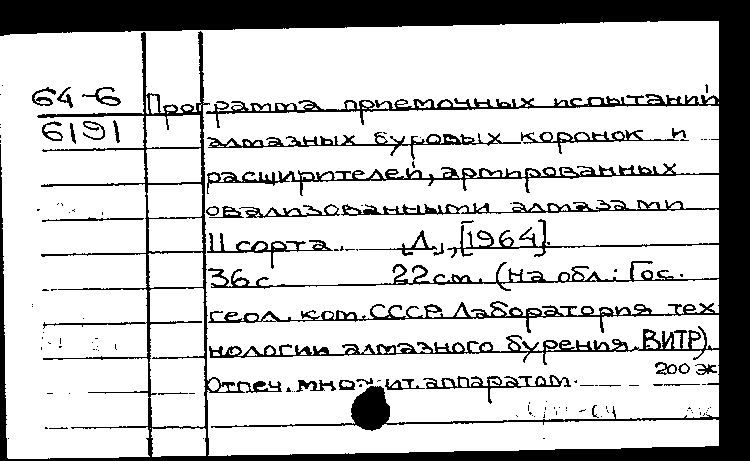 64-6
6191
Программа приемочных испытаний
алмазных буровых коронок и
расширителей, армированных
овализованными алмазами
II сорта. „Л.", [1964].
36 с. 22 см. (На обл.: Гос.
геол. ком. СССР. Лаборатория тех
нологии алмазного бурения. ВИТР).
Отпеч. множит. аппаратом. 200 эк